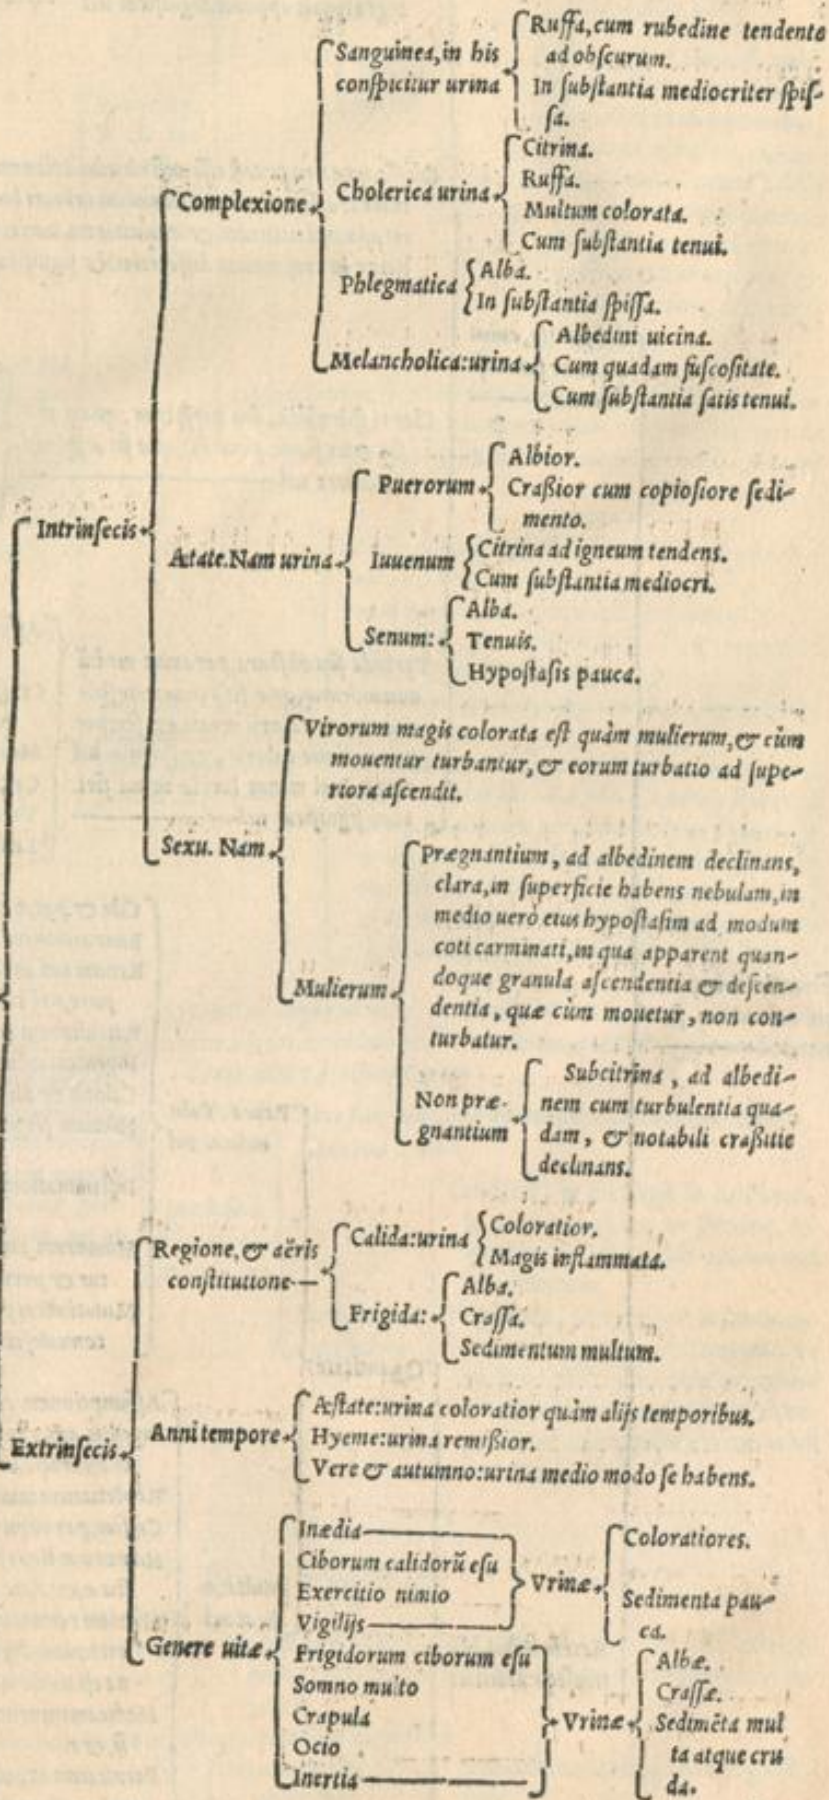 Intrinsecis
Complexione
Sanguinea, in his
conspicitur urina
Ruffa, cum rubedine tendente
ad obscurum.
In substantia mediocriter spis-
sa.
Cholerica urina
Citrina.
Ruffa.
Multum colorata.
Cum substantia tenui.
Phlegmatica
Alba.
In substantia spissa.
Melancholica: urina
Albedini uicina.
Cum quadam fuscositate.
Cum substantia satis tenui.
Ætate. Nam urina
Puerorum
Albior.
Craßior cum copiosiore sedi-
mento.
Iuuenum
Citrina ad igneum tendens.
Cum substantia mediocri.
Senum:
Alba.
Tenuis.
Hypostasis pauca.
Sexu. Nam
Virorum magis colorata est quàm mulierum, & cùm
mouentur turbantur, & eorum turbatio ad supe-
riora ascendit.
Mulierum
Prægnantium, ad albedinem declinans,
clara, in superficie habens nebulam, in
medio uerò eius hypostasim ad modum
coti carminati, in qua apparent quan-
doque granula ascendentia & descen-
dentia, quæ cùm mouetur, non con-
turbatur.
Non præ-
gnantium
Subcitrina, ad albedi-
nem cum turbulentia qua-
dam, & notabili craßitie
declinans.
Extrinsecis
Regione, & aëris
constitutione
Calida: urina
Coloratior.
Magis inflammata.
Frigida:
Alba.
Crassa.
Sedimentum multum.
Anni tempore
Æstate: urina coloratior quàm alijs temporibus.
Hyeme: urina remißior.
Vere & autumno: urina medio modo se habens.
Genere uitæ
Inædia
Ciborum calidorũ esu
Exercitio nimio
Vigilijs
Vrinæ
Coloratiores.
Sedimenta pau-
ca.
Frigidorum ciborum esu
Somno multo
Crapula
Ocio
Inertia
Vrinæ
Albæ.
Crassæ.
Sedimẽta mul
ta atque cru
da.